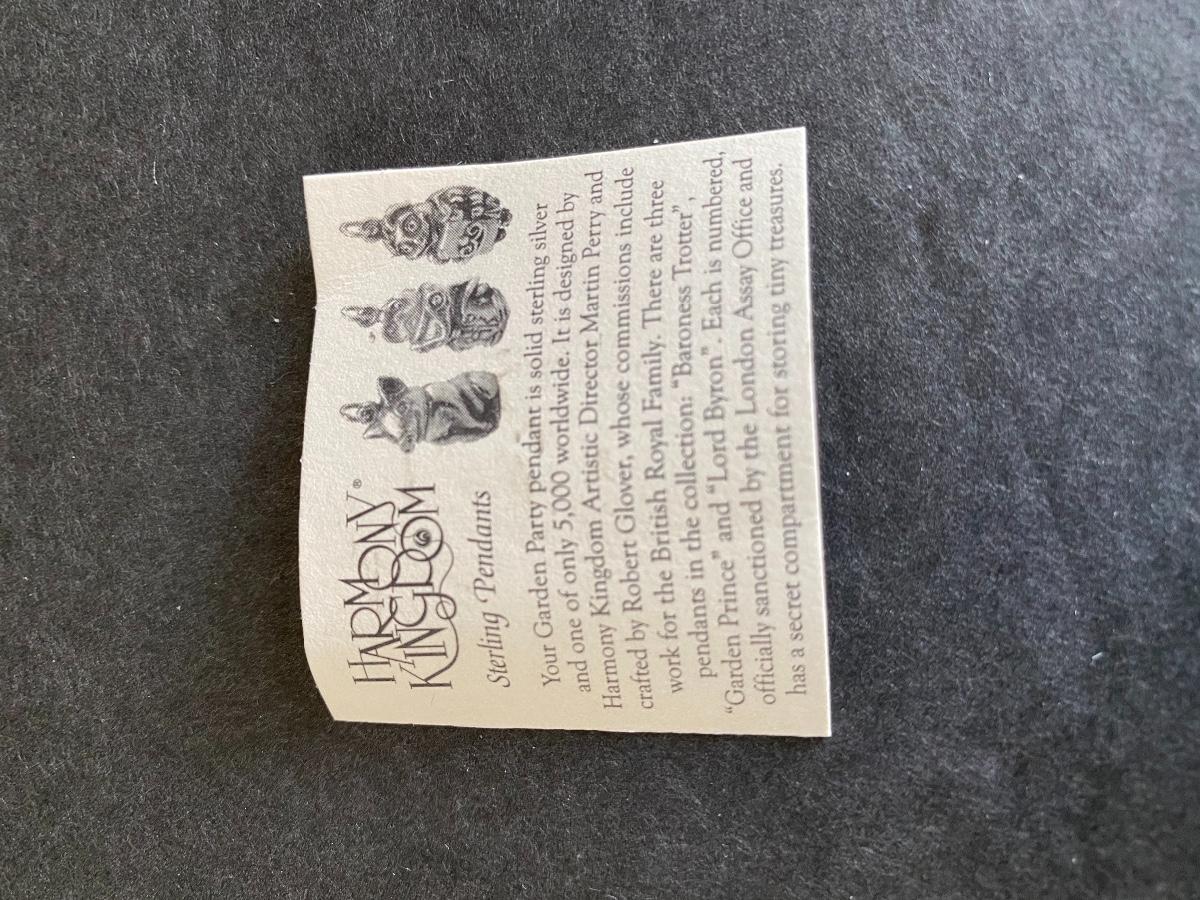 HARMONY®
KINGDOM
Sterling Pendants
Your Garden Party pendant is solid sterling silver
and one of only 5,000 worldwide. It is designed by
Harmony Kingdom Artistic Director Martin Perry and
crafted by Robert Glover, whose commissions include
work for the British Royal Family. There are three
pendants in the collection: "Baroness Trotter",
"Garden Prince" and "Lord Byron". Each is numbered,
officially sanctioned by the London Assay Office and
has a secret compartment for storing tiny treasures.